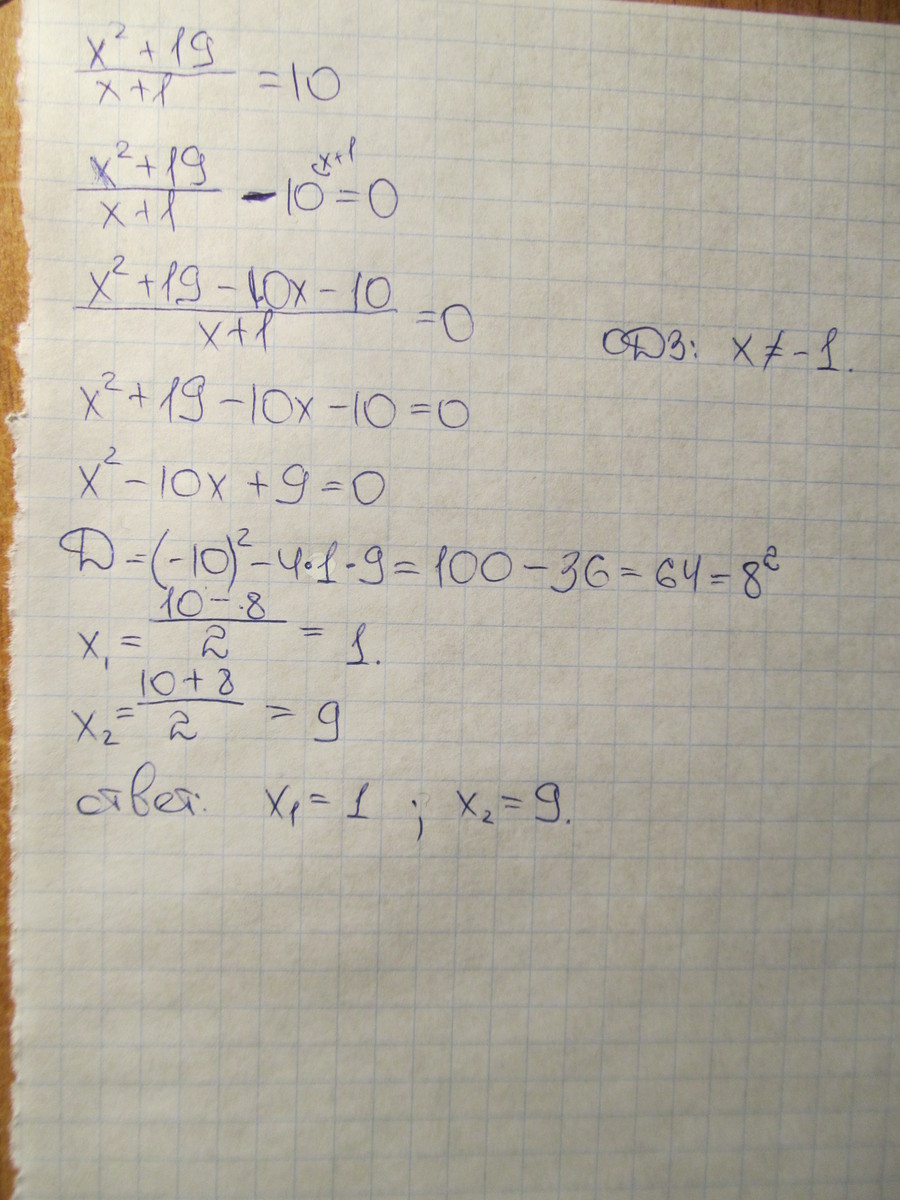 x² + 19 / x + 1 = 10
x² + 19 / x + 1 - 10^(x+1 = 0
x² + 19 - 10x - 10 / x + 1 = 0
ОДЗ: x ≠ -1.
x² + 19 - 10x - 10 = 0
x² - 10x + 9 = 0
D = (-10)² - 4·1·9 = 100 - 36 = 64 = 8²
x₁ = 10 - 8 / 2 = 1.
x₂ = 10 + 8 / 2 = 9
ответ: x₁ = 1 ; x₂ = 9.